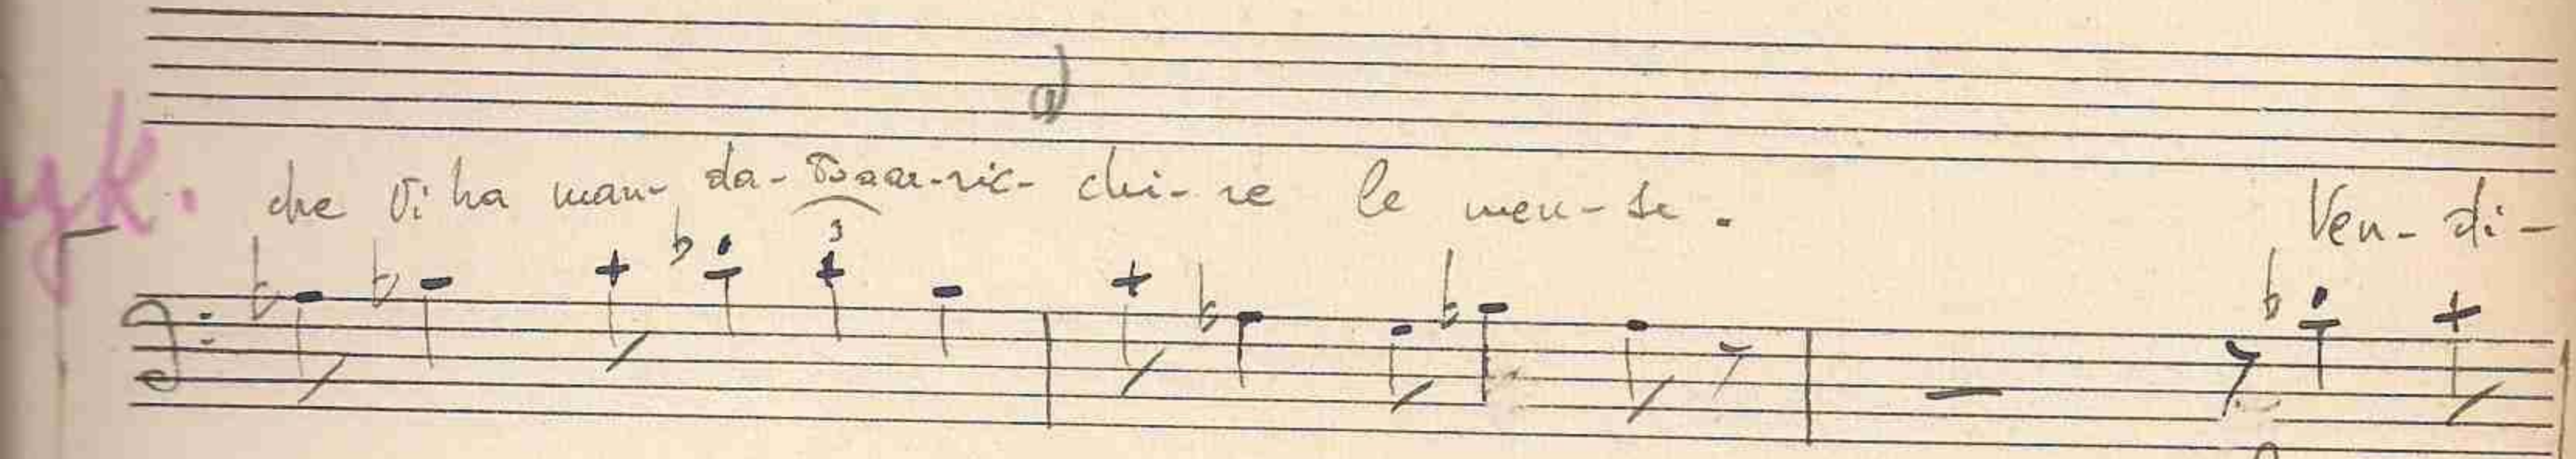 a)
yk. che vi ha man- da- to a ar-ric- chi- re le men-se. Ven- di-
3